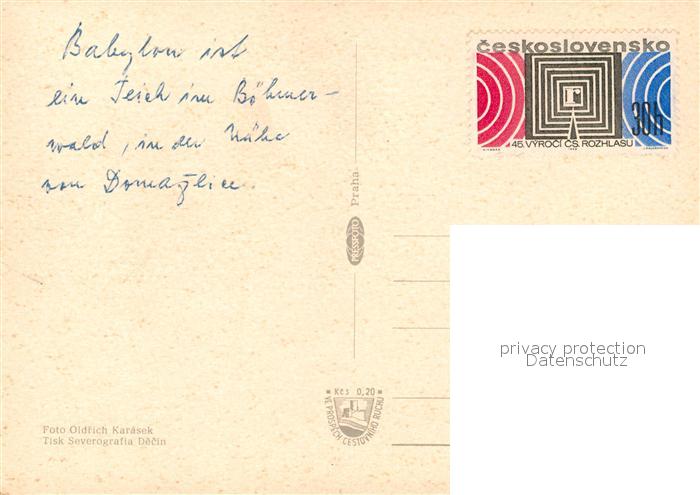 Babylon ist
ein Teich im Böhmer-
wald, in der Nähe
von Domažlice.
československo
30h
45. VÝROČÍ ČS. ROZHLASU
Praha
PRESSFOTO
privacy protection
Datenschutz
Kčs 0,20
VE PROSPĚCH CESTOVNÍHO RUCHU
Foto Oldřich Karásek
Tisk Severografia Děčín